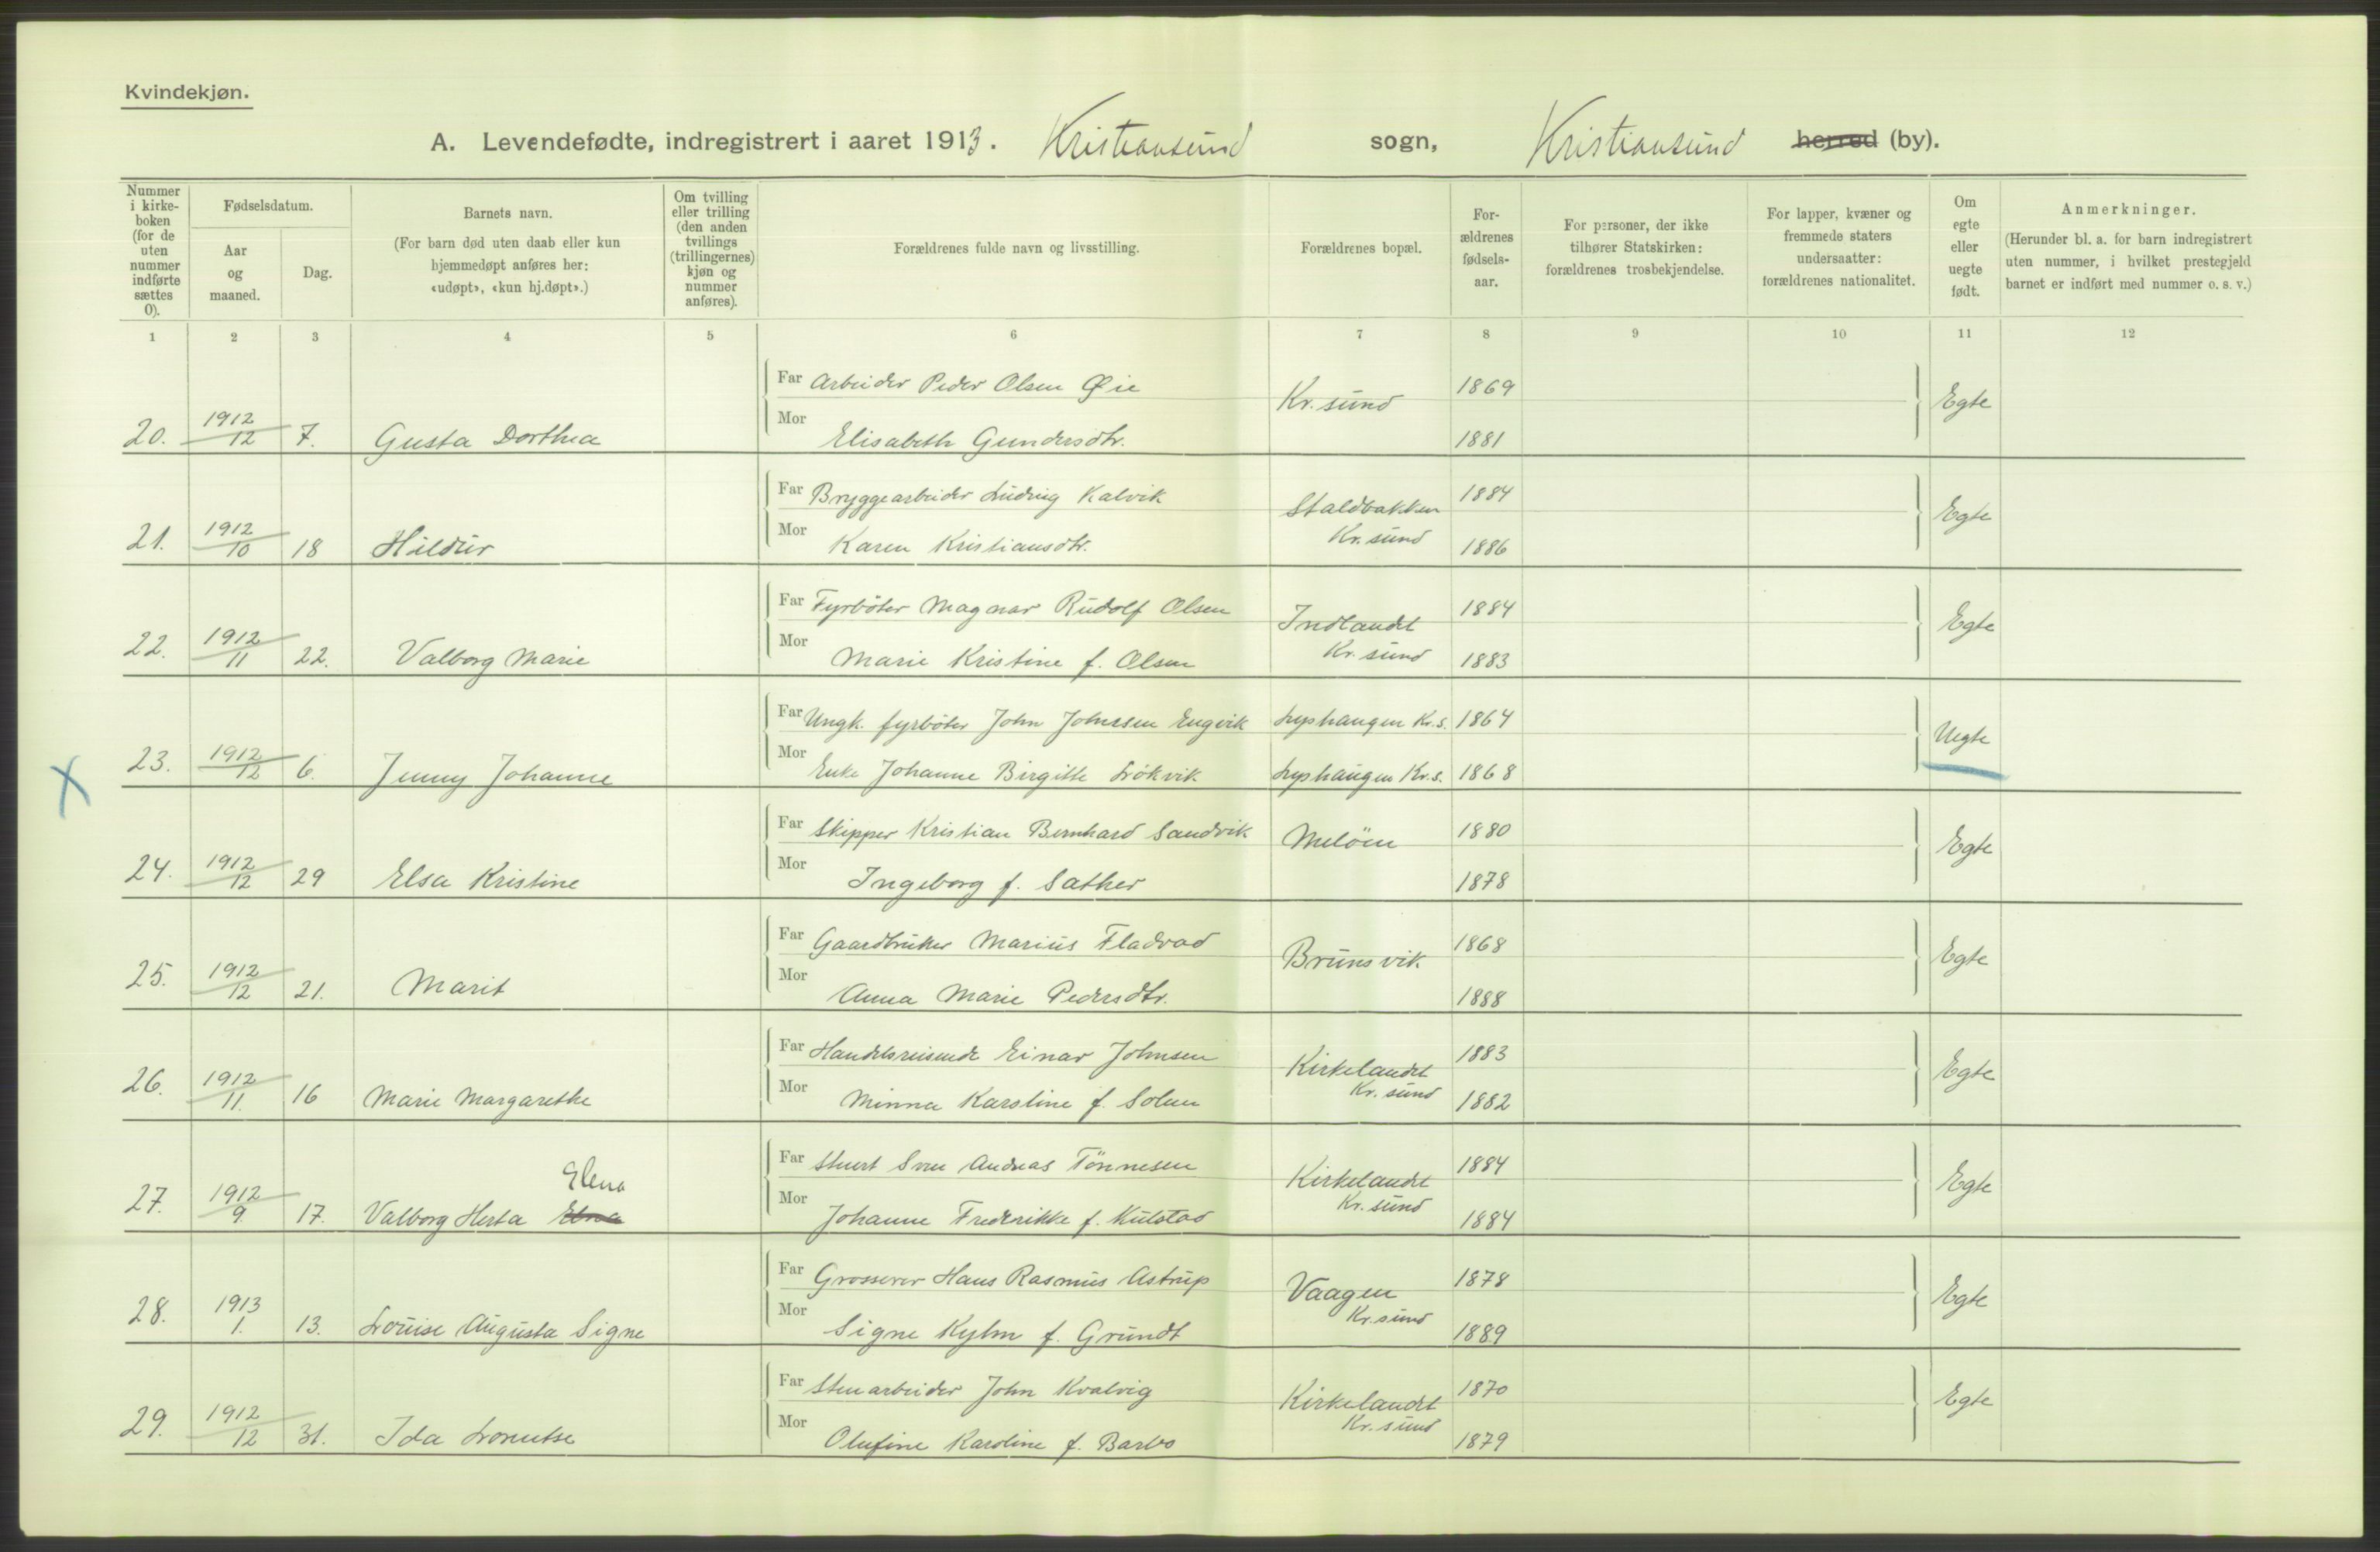 Kvindekjøn.
A. Levendefødte, indregistrert i aaret 1913. Kristiansund sogn, Kristiansund herred (by).
Nummer i kirke-boken (for de uten nummer indførte sættes 0).
Fødselsdatum.
Aar og maaned.
Dag.
Barnets navn.
(For barn død uten daab eller kun hjemmedøpt anføres her: «udøpt», «kun hj.døpt».)
Om tvilling eller trilling (den anden tvillings (trillingernes) kjøn og nummer anføres).
Forældrenes fulde navn og livsstilling.
Forældrenes bopæl.
For-ældrenes fødsels-aar.
For personer, der ikke tilhører Statskirken: forældrenes trosbekjendelse.
For lapper, kvæner og fremmede staters undersaatter: forældrenes nationalitet.
Om egte eller uegte født.
Anmerkninger.
(Herunder bl. a. for barn indregistrert uten nummer, i hvilket prestegjeld barnet er indført med nummer o. s. v.)
1 2 3 4 5 6 7 8 9 10 11 12
Far Arbeider Peder Olsen Øie Kr.sund 1869 Egte
20. 1912/12 7. Gusta Dorthea Mor Elisabeth Gundersdtr. 1881
Far Bryggearbeider Ludvig Kalvik Staldbakken 1884 Egte
21. 1912/10 18 Hildur Mor Karen Kristiansdtr. Kr.sund 1886
Far Fyrbøter Magnar Rudolf Olsen Indlandet 1884 Egte
22. 1912/11 22. Valborg Marie Mor Marie Kristine f. Olsen Kr.sund 1883
Far Ungk. fyrbøter John Johnssen Engvik Lyshaugen Kr.s. 1864 Uegte
X 23. 1912/12 6. Jenny Johanne Mor Enke Johanne Birgitte Løkvik Lyshaugen Kr.s. 1868
Far Skipper Kristian Bernhard Sandvik Meløen 1880 Egte
24. 1912/12 29 Elsa Kristine Mor Ingeborg f. Sather 1878
Far Gaardbruker Marius Fladvad Brunsvik 1868 Egte
25. 1912/12 21. Marit Mor Anna Marie Pedersdtr. 1888
Far Handelsreisende Einar Johnsen Kirkelandet 1883 Egte
26. 1912/11. 16 Marie Margarethe Mor Minna Karstine f. Solem Kr.sund 1882
Elena Far Stuert Sven Andreas Tönnesen Kirkelandet 1884 Egte
27. 1912/9. 17. Valborg Herta Elna Mor Johanne Frederikke f. Kulstad Kr.sund 1884
Far Grosserer Hans Rasmus Astrup Vaagen 1878 Egte
28. 1913/1. 13. Louise Augusta Signe Mor Signe Kylm f. Grundt Kr.sund 1889
Far Stenarbeider John Kvalvig Kirkelandet 1870 Egte
29. 1912/12 31. Ida Lorentse Mor Olufine Karoline f. Barbo Kr.sund 1879